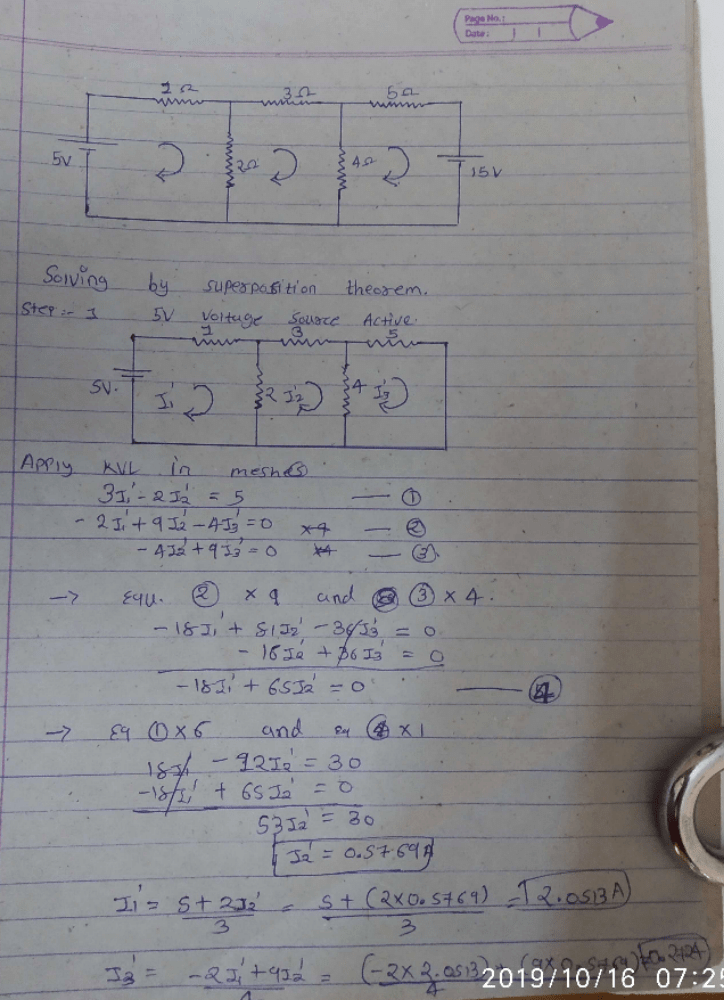 Page No.:
Date:
1Ω 3Ω 5Ω
5V 2Ω 4Ω 15V
Solving by superposition theorem.
Step:- 1 5V voltage Source Active.
1 3 5
5V. I₁' 2 I₂' 4 I₃'
Apply KVL in meshes
3I₁' - 2I₂' = 5 — ①
- 2I₁' + 9I₂' - 4I₃' = 0 ×9 — ②
- 4I₂' + 9I₃' = 0 ×4 — ③
→ Equ. ② × 9 and ③ × 4.
- 18I₁' + 81I₂' - 36I₃' = 0
- 16I₂' + 36I₃' = 0
- 18I₁' + 65I₂' = 0 — ④
→ Eq ① × 6 and Eq ④ × 1
18I₁' - 12I₂' = 30
- 18I₁' + 65I₂' = 0
53I₂' = 30
I₂' = 0.5769A
I₁' = 5 + 2I₂' / 3 = 5 + (2×0.5769) / 3 = 2.0513A
I₃' = -2I₁' + 9I₂' / 4 = (-2 × 2.0513) + (9×0.5769) / 4
2019/10/16 07:25